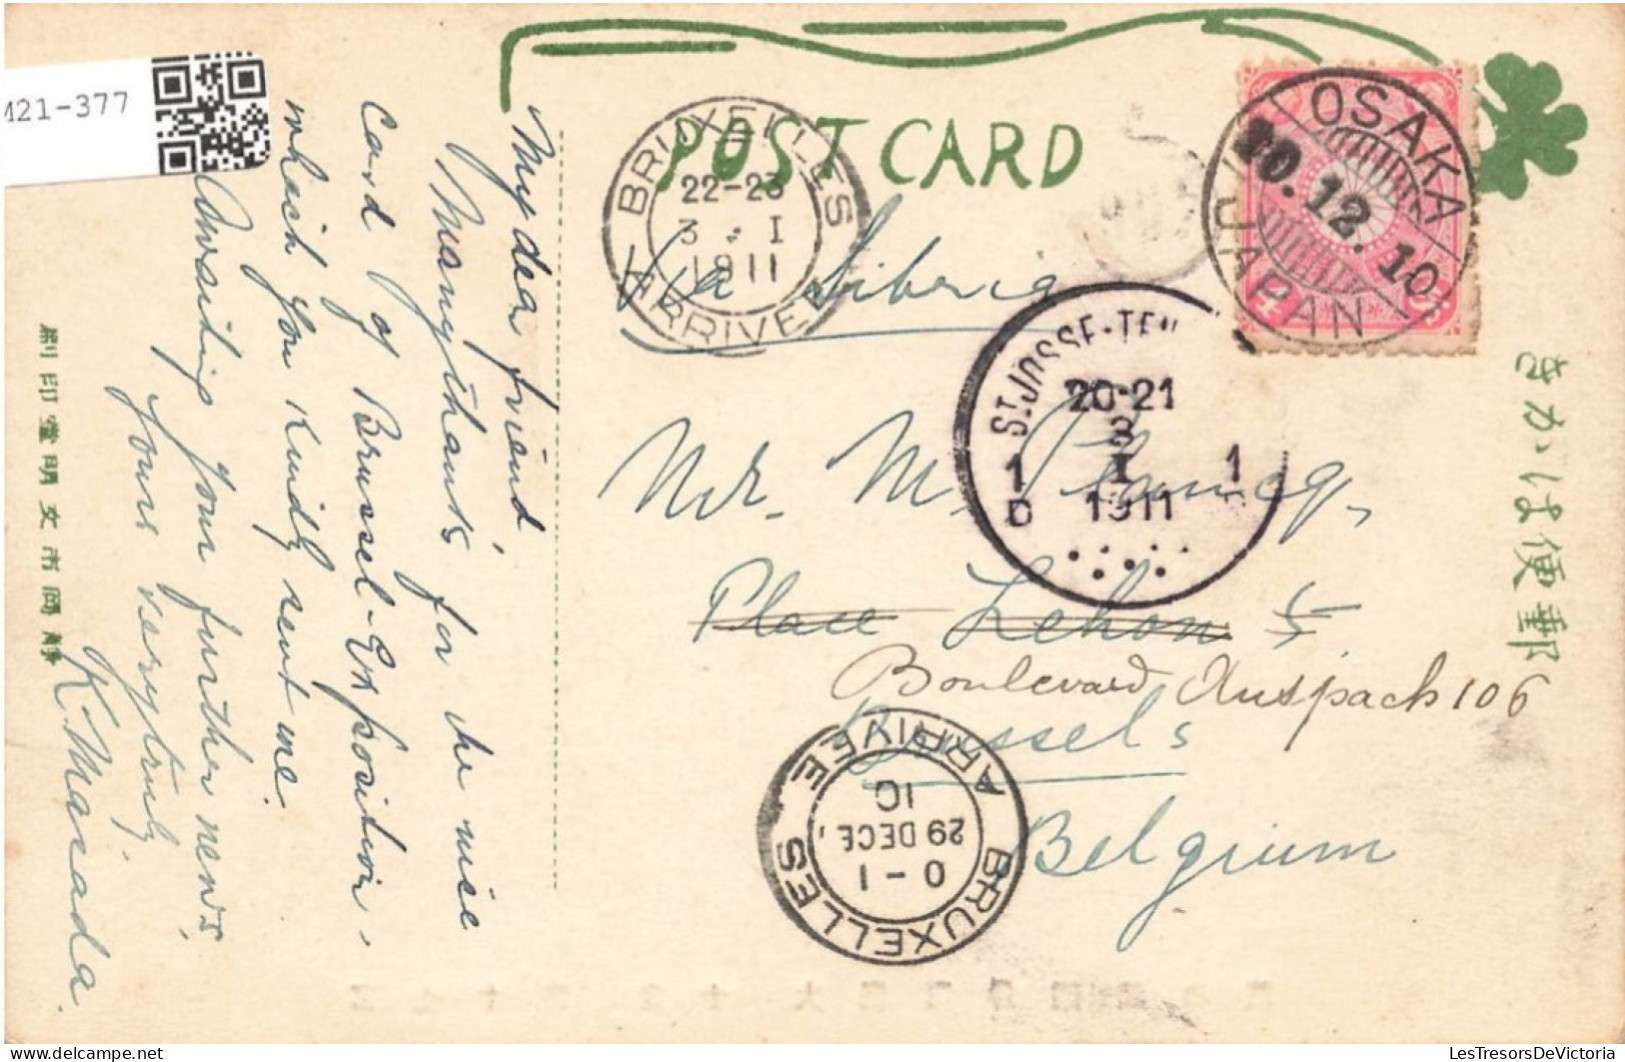 M21-377
POST CARD
OSAKA
10.12.10
JAPAN
BRUXELLES
22-23
3 I
1911
ARRIVEE
Via Siberia
ST.JOSSE-TEN
20-21
3
1 I 1
D 1911
Mr. M.
Place Lehon 5
Boulevard Anspach 106
Brussels
Belgium
BRUXELLES
0-1
29 DECE
10
ARRIVEE
きかは便郵
My dea friend,
Many thanks for the nice
Card of Brussel-Exposition,
which you kindly sent me.
Awaiting your further news,
yours very truly,
K. Manada.
刷印堂明文市岡静
delcampe.net
LesTresorsDeVictoria